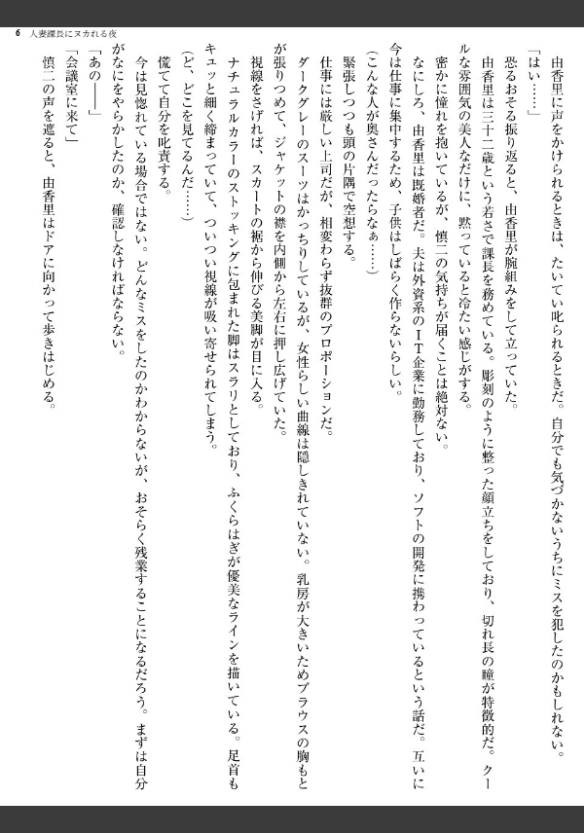 6 人妻課長にヌカれる夜
由香里に声をかけられるときは、たいてい叱られるときだ。自分でも気づかないうちにミスを犯したのかもしれない。
「はい……」
恐るおそる振り返ると、由香里が腕組みをして立っていた。
由香里は三十二歳という若さで課長を務めている。彫刻のように整った顔立ちをしており、切れ長の瞳が特徴的だ。クー
ルな雰囲気の美人なだけに、黙っていると冷たい感じがする。
密かに憧れを抱いているが、慎二の気持ちが届くことは絶対ない。
なにしろ、由香里は既婚者だ。夫は外資系のIT企業に勤務しており、ソフトの開発に携わっているという話だ。互いに
今は仕事に集中するため、子供はしばらく作らないらしい。
(こんな人が奥さんだったらなぁ……)
緊張しつつも頭の片隅で空想する。
仕事には厳しい上司だが、相変わらず抜群のプロポーションだ。
ダークグレーのスーツはかっちりしているが、女性らしい曲線は隠しきれていない。乳房が大きいためブラウスの胸もと
が張りつめて、ジャケットの襟を内側から左右に押し広げていた。
視線をさげれば、スカートの裾から伸びる美脚が目に入る。
ナチュラルカラーのストッキングに包まれた脚はスラリとしており、ふくらはぎが優美なラインを描いている。足首も
キュッと細く締まっていて、ついつい視線が吸い寄せられてしまう。
(ど、どこを見てるんだ……)
慌てて自分を叱責する。
今は見惚れている場合ではない。どんなミスをしたのかわからないが、おそらく残業することになるだろう。まずは自分
がなにをやらかしたのか、確認しなければならない。
「あの――」
「会議室に来て」
慎二の声を遮ると、由香里はドアに向かって歩きはじめる。